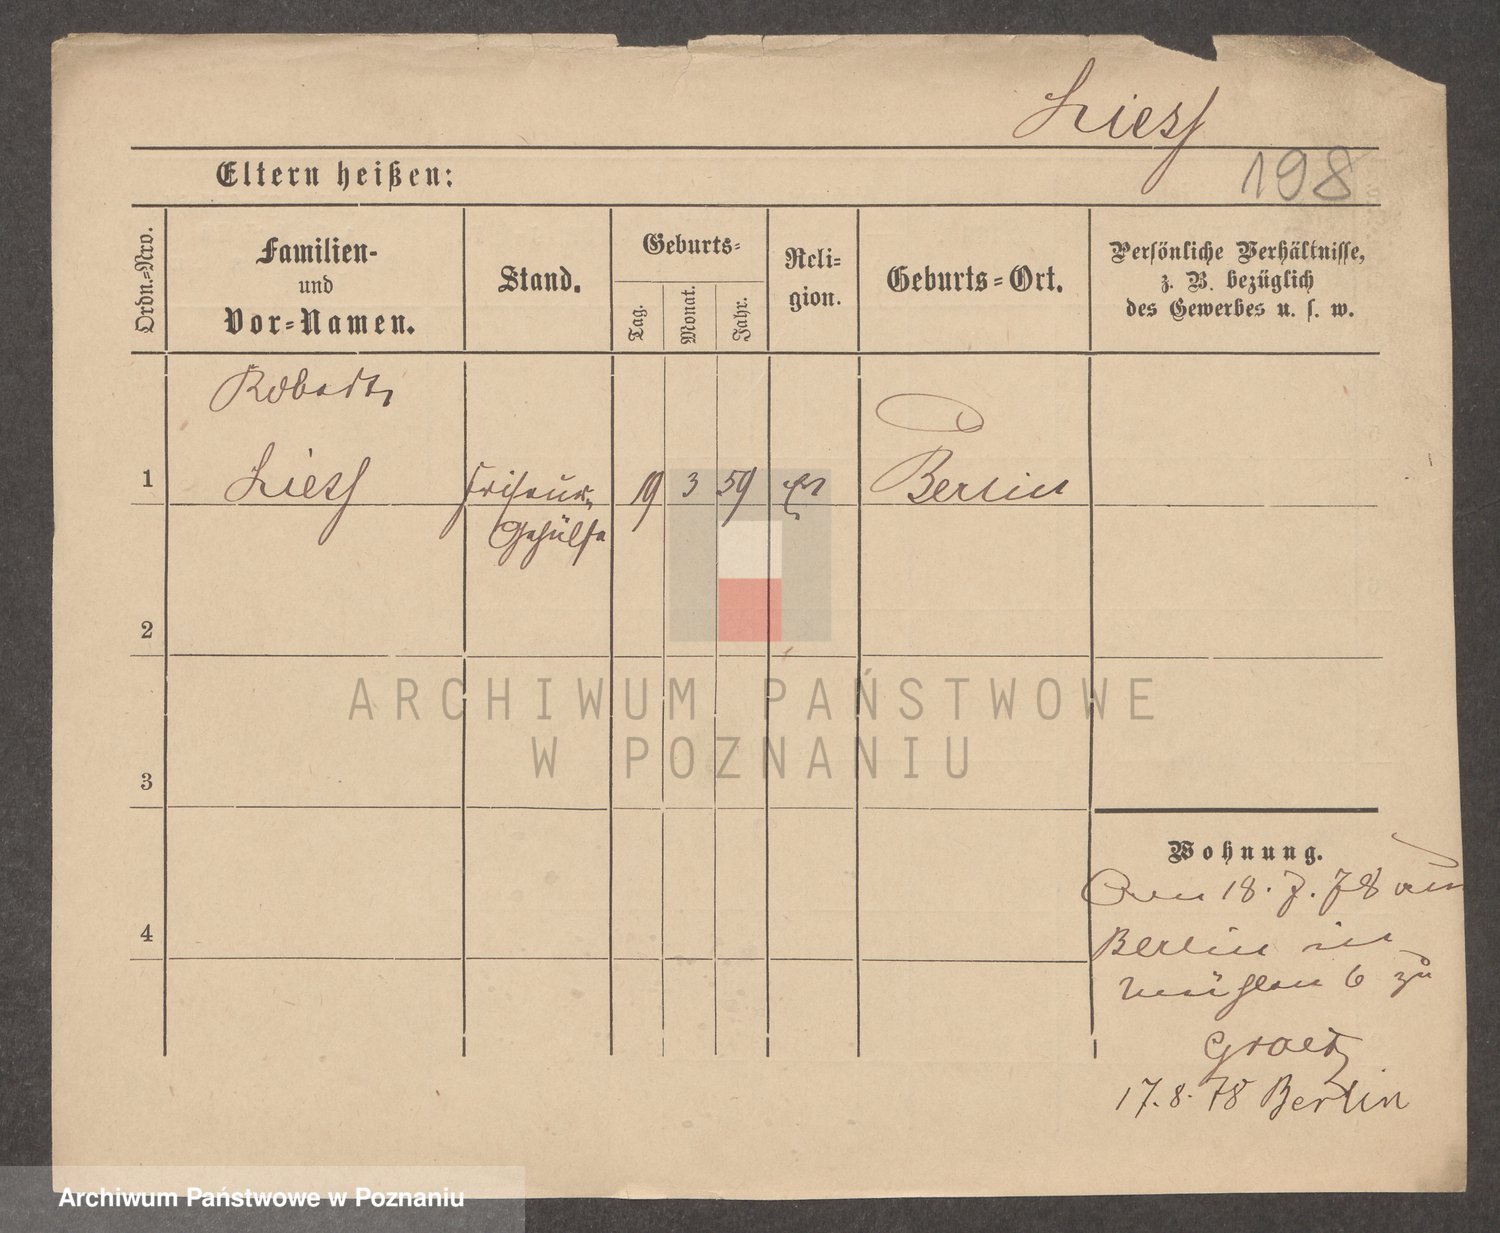 Liesf
198
Eltern heißen:
Ordn.=Nro.
Familien-
und
Vor=Namen.
Stand.
Geburts=
Tag.
Monat.
Jahr.
Reli=
gion.
Geburts=Ort.
Persönliche Verhältnisse,
z. B. bezüglich
des Gewerbes u. s. w.
Robert
1 Liesf Friseur- 19 3 59 ev Berlin
Gehülfe
2
3
4
Wohnung.
Den 18. 7. 78 aus
Berlin in
Mühlen 6 zu
Graetz
17. 8. 78 Berlin
ARCHIWUM PAŃSTWOWE
W POZNANIU
Archiwum Państwowe w Poznaniu